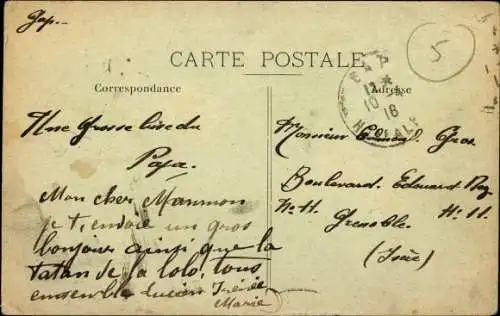 Gap.
5
CARTE POSTALE
Correspondance
Adresse
GAP
12 *
10 16
H
ALPES
Une Grosse bise du
Papa.
Mon cher Mammon
je t'envoie un gros
bonjour ainsi que la
tatan de la lolo, tous
ensemble Lucien Irénée
Marie
Monsieur Edmond Gros
Boulevard Edouard Rey
N. 11. Grenoble. N. 11.
(Isère)